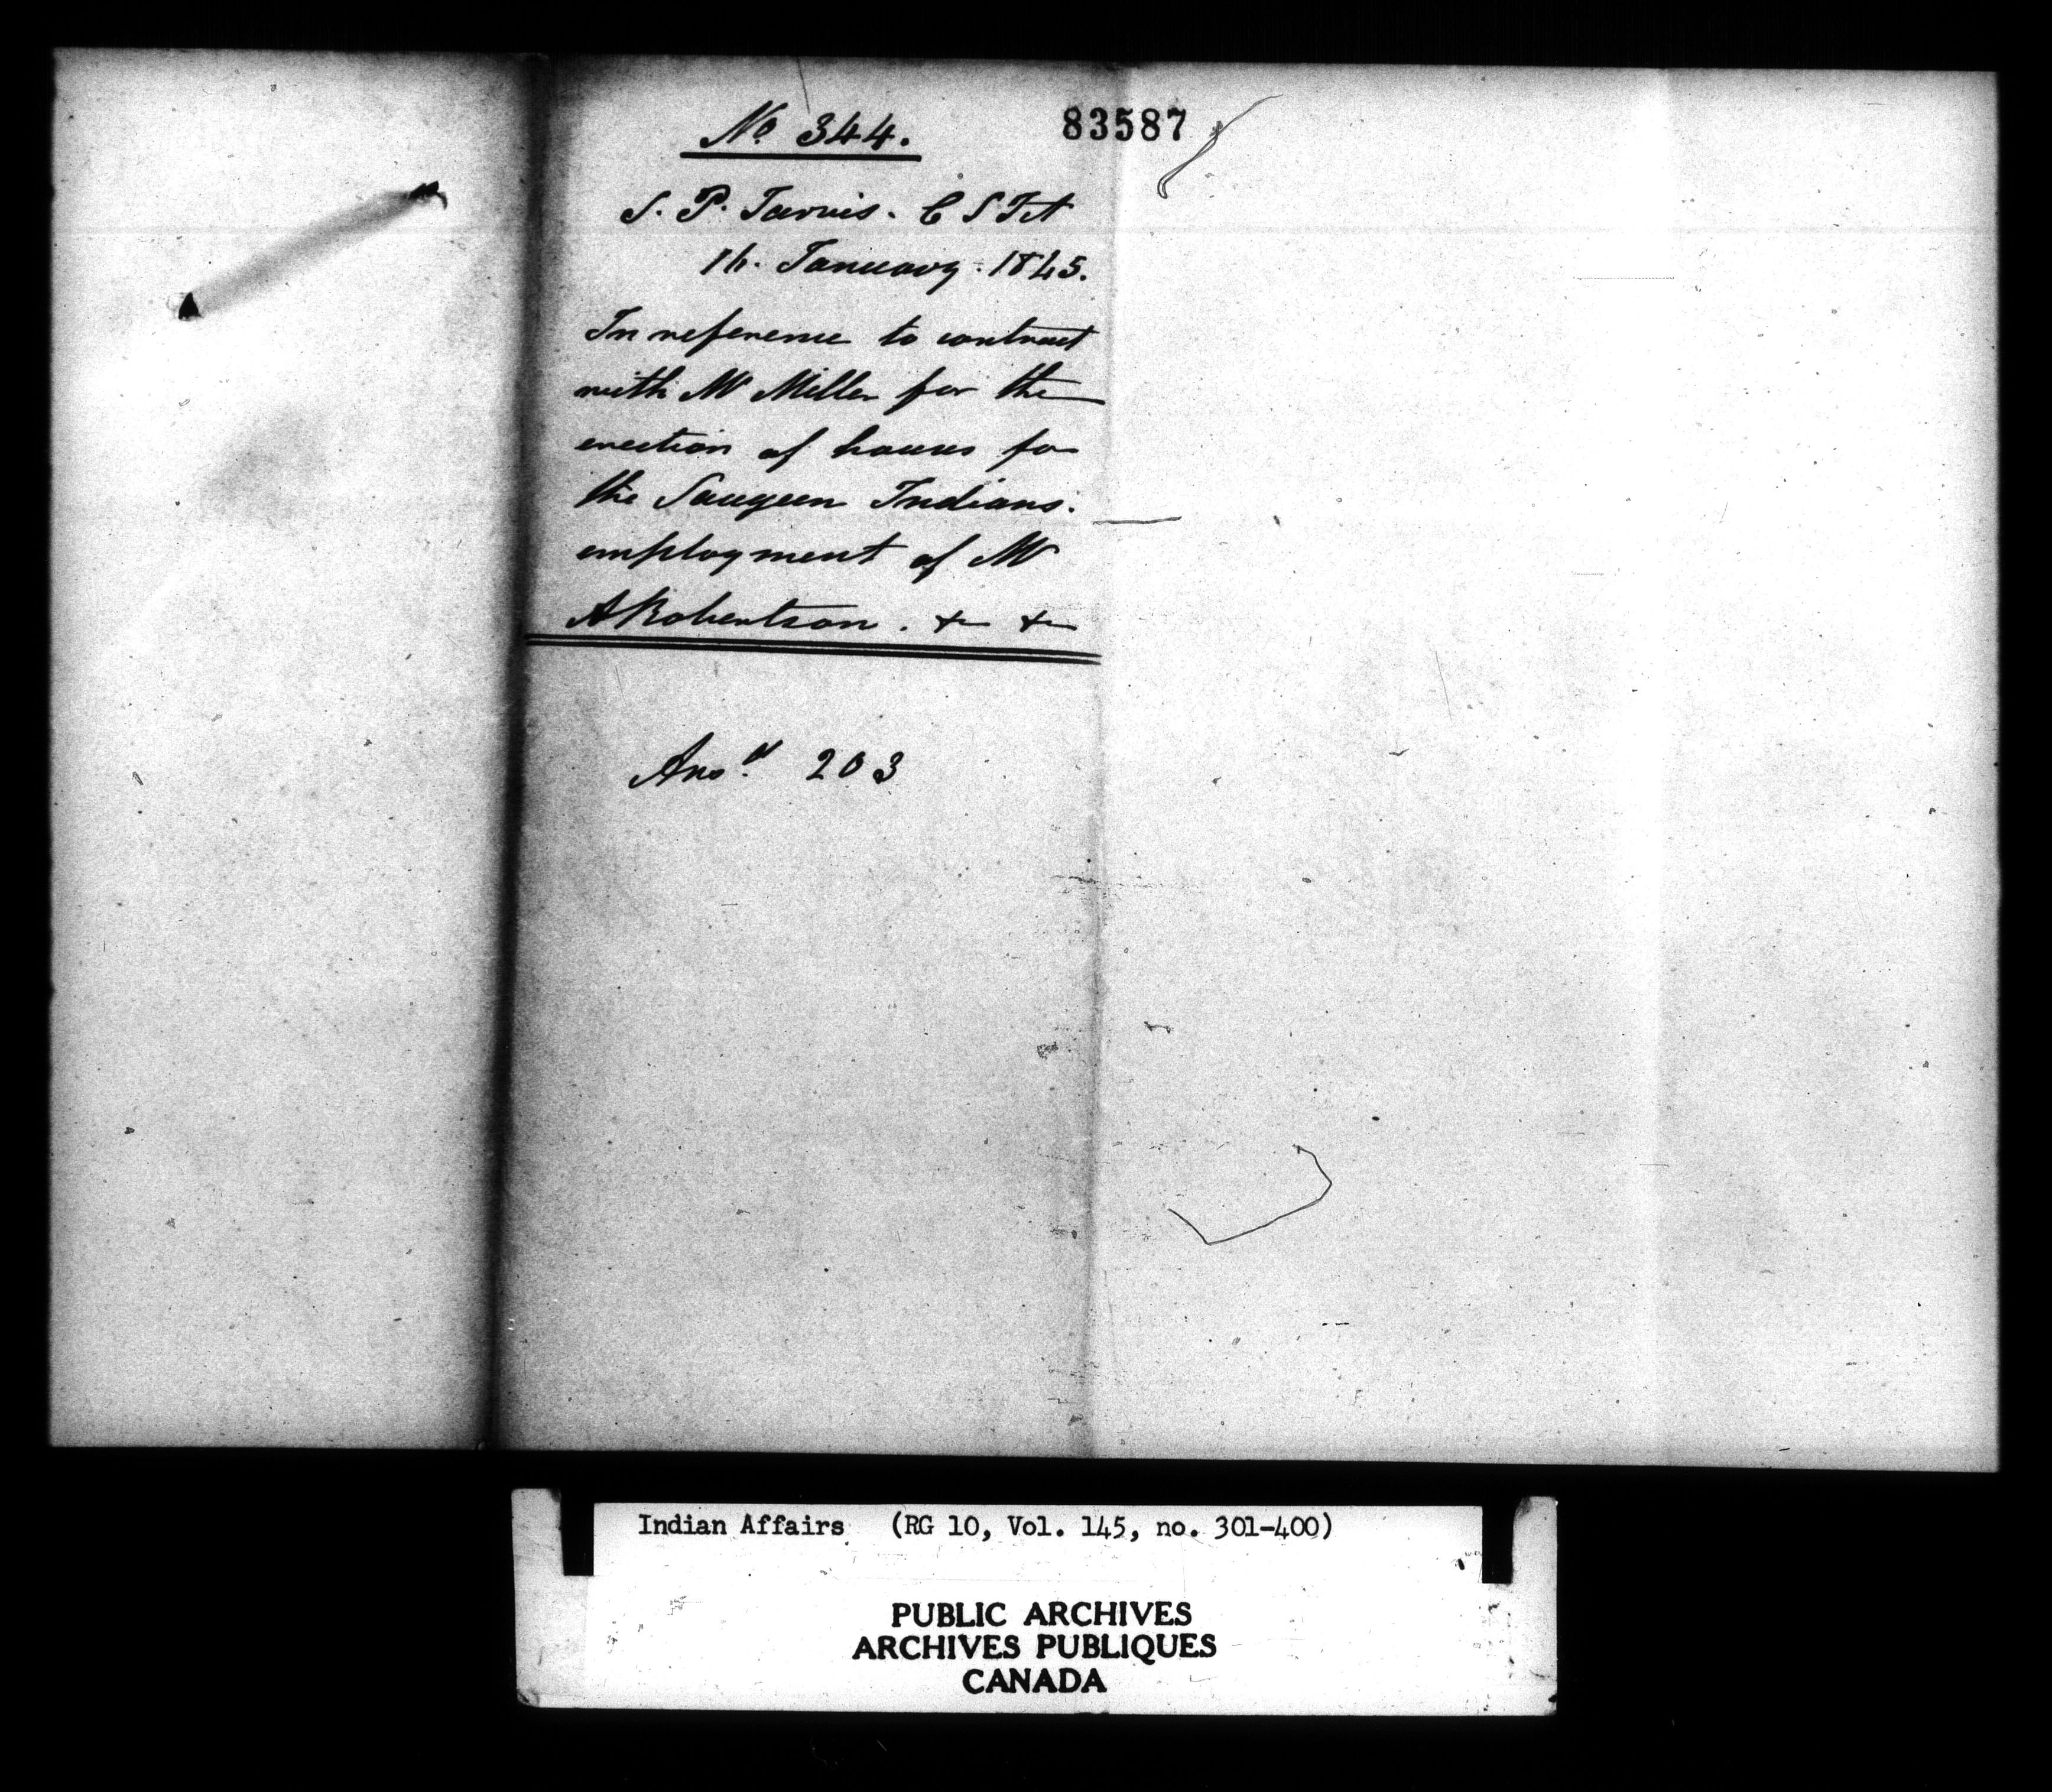 No 344.
83587
S. P. Jarvis. C S I A
16. January. 1845.
In reference to contract
with Mr Miller for the
erection of houses for
the Saugeen Indians.
employment of Mr
A Robertson. &c &c
Ansd. 203
Indian Affairs (RG 10, Vol. 145, no. 301-400)
PUBLIC ARCHIVES
ARCHIVES PUBLIQUES
CANADA